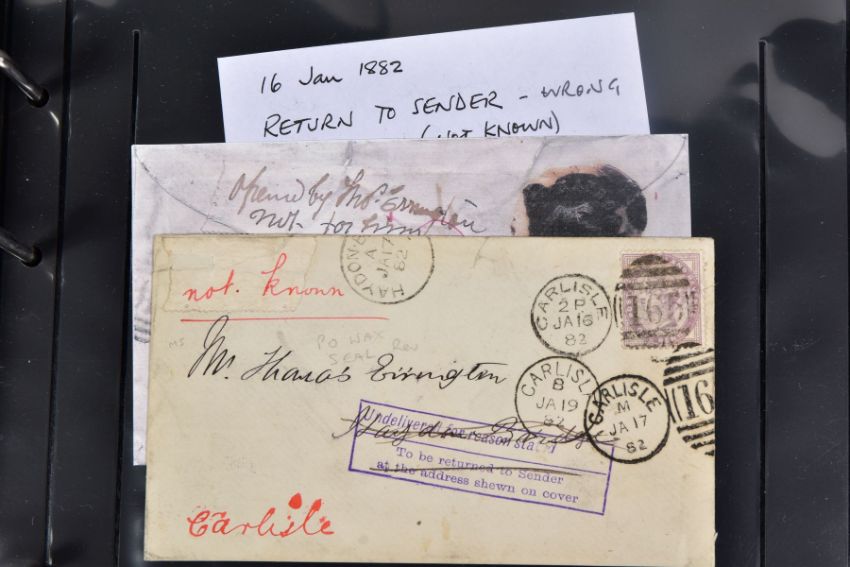 16 Jan 1882
RETURN TO SENDER - WRONG
(NOT KNOWN)
Opened by Thos. Errington
not for him
HAYDON-B
A
JA 17
82
not known
CARLISLE
2 P
JA 16
82
165
MS
PO WAX
SEAL
REV
Mr. Thomas Errington
CARLISLE
B
JA 19
82
CARLISLE
M
JA 17
82
Haydon Bridge
Undelivered for reason stated
To be returned to Sender
at the address shewn on cover
Carlisle